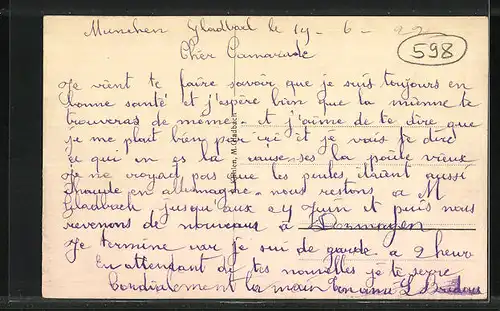 Munchen Gladbach le 19 - 6 - 22
598
Cher Camarade
Je vient te faire savoir que je suis toujours en
bonne santé et j'espère bien que la mienne te
trouveras de meme. et j'aime de te dire que
je me plait bien par ici et je vais te dire
ce qui en es la cause ses la poule vieux
Je ne croyai pas que les poules étaient aussi
chaude en allemagne. nous restons a M
Gladbach jusqu'aux 27 Juin et puis nous
revenons de nouveaux à Dormagen
Je termine car je sui de garde a 2 heure
En attendant de tes nouvelles je te serre
Cordialement la main Ton ami L
M. Gladbach